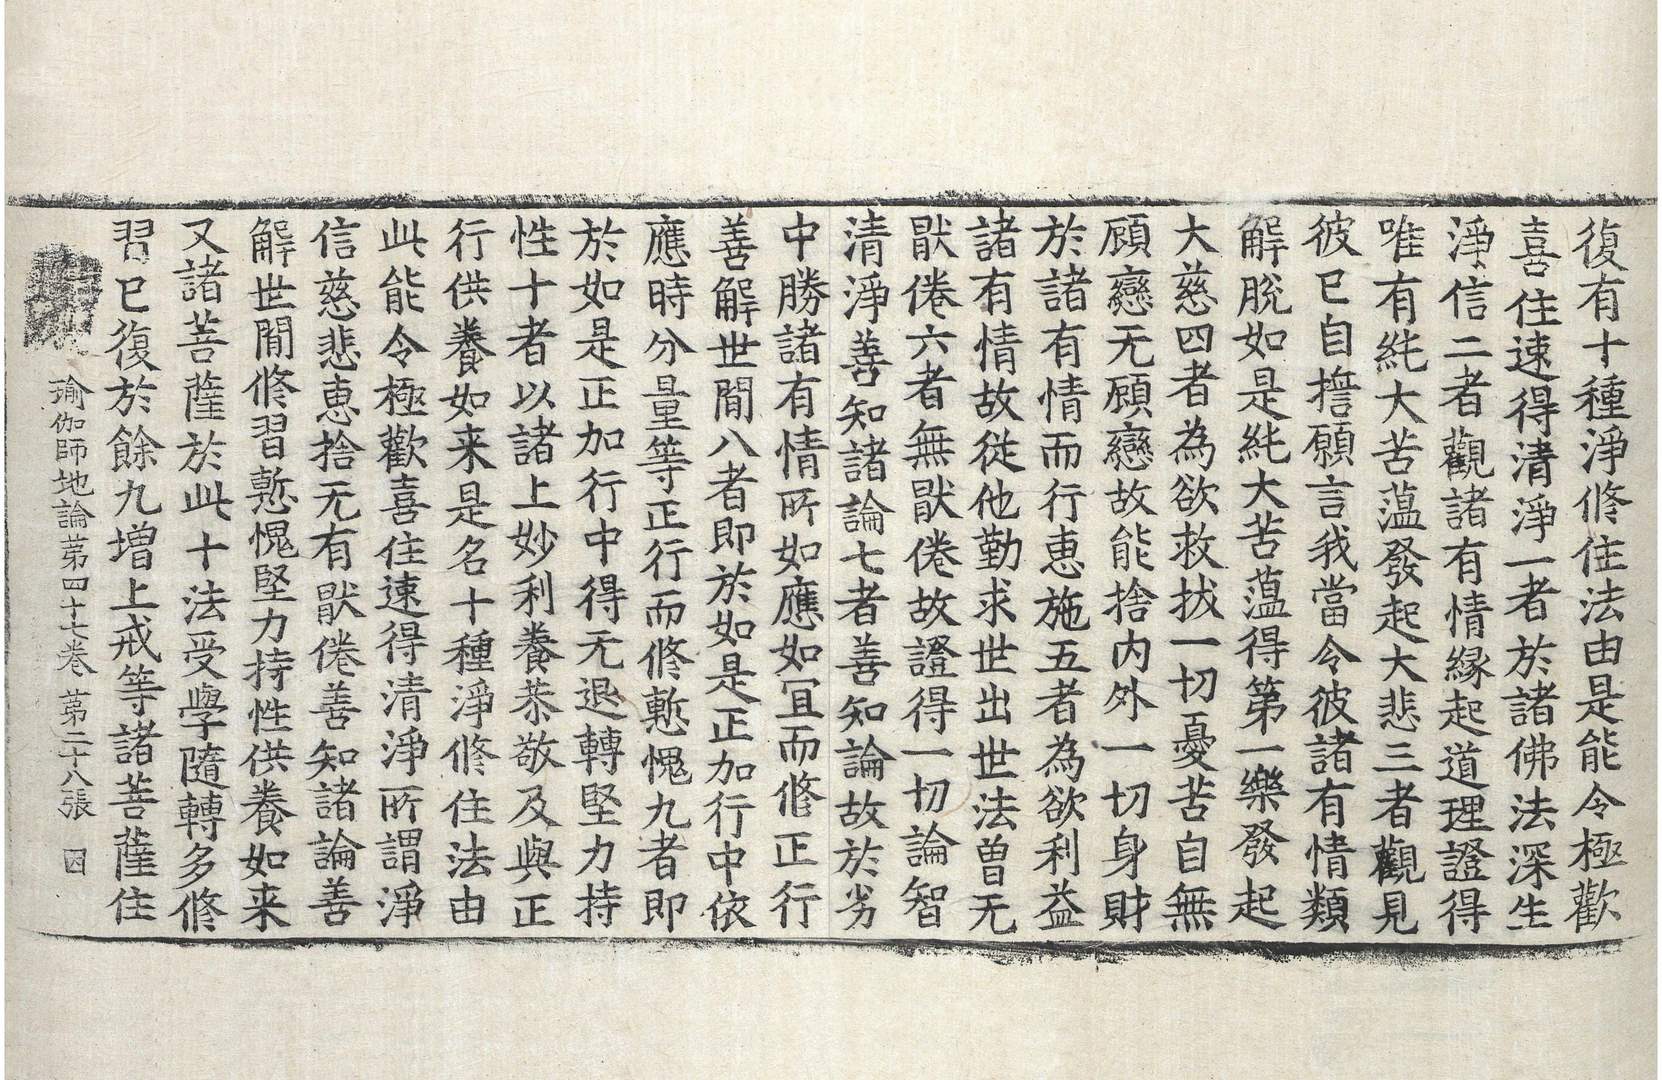 復有十種淨修住法由是能令極歡
喜住速得清淨一者於諸佛法深生
淨信二者觀諸有情緣起道理證得
唯有純大苦蕰發起大悲三者觀見
彼已自擔願言我當令彼諸有情類
解脫如是純大苦蕰得第一樂發起
大慈四者為欲救拔一切憂苦自無
顧戀无顧戀故能捨內外一切身財
於諸有情而行恵施五者為欲利益
諸有情故從他勤求世出世法曾无
猒倦六者無猒倦故證得一切論智
清淨善知諸論七者善知論故於劣
中勝諸有情所如應如冝而修正行
善解世閒八者即於如是正加行中依
應時分量等正行而修慙愧九者即
於如是正加行中得无退轉堅力持
性十者以諸上妙利養恭敬及與正
行供養如来是名十種淨修住法由
此能令極歡喜住速得清淨所謂淨
信慈悲恵捨无有猒倦善知諸論善
解世閒修習慙愧堅力持性供養如来
又諸菩薩於此十法受學隨轉多修
習已復於餘九增上戒等諸菩薩住
瑜伽師地論第四十七卷 第二十八張 四